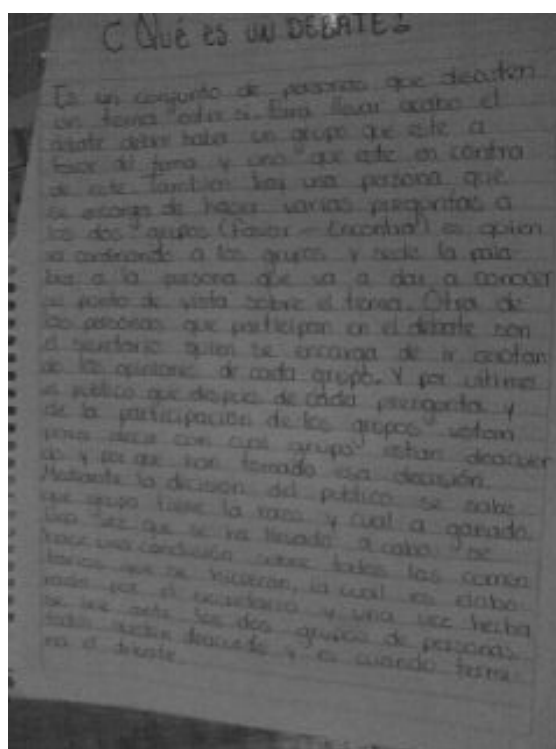 ¿Qué es UN DEBATE?
Es un conjunto de personas que discuten
un tema entre si. Para llevar acabo el
debate debe haber un grupo que este a
favor del tema y uno que este en contra
de este. Tambien hay una persona que
se encarga de hacer varias preguntas a
los dos grupos (Favor - Encontra) es quien
va cordinando a los grupos y sede la pala
bra a la persona que va a dar a conocer
su punto de vista sobre el tema. Otra de
las personas que participan en el debate son
el secretario quien se encarga de ir anotan
do las opiniones de cada grupo. Y por ultimo
el publico que despues de cada pregunta y
de la participación de los grupos votan
para decir con cual grupo estan deacuer
do y por que han tomado esa decisión.
Mediante la decision del publico se sabe
que grupo tiene la razon y cual a ganado.
Una vez que se ha llevado a cabo se
hace una conclusión sobre todos los comen
tarios que se hicieron, la cual es elabo
rada por el secretario y una vez hecha
se lee ante los dos grupos de personas
todos deacuerdo y es cuando termi
na el debate.